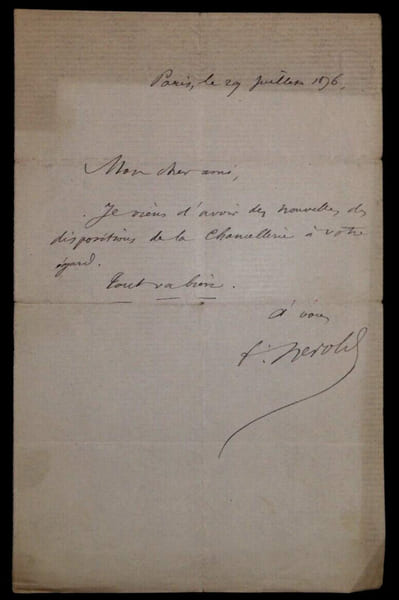 Paris, le 29 juillet 1876.
Mon cher ami,
Je viens d'avoir des nouvelles des
dispositions de la Chancellerie à votre
égard.
Tout va bien.
à vous
F. Herold